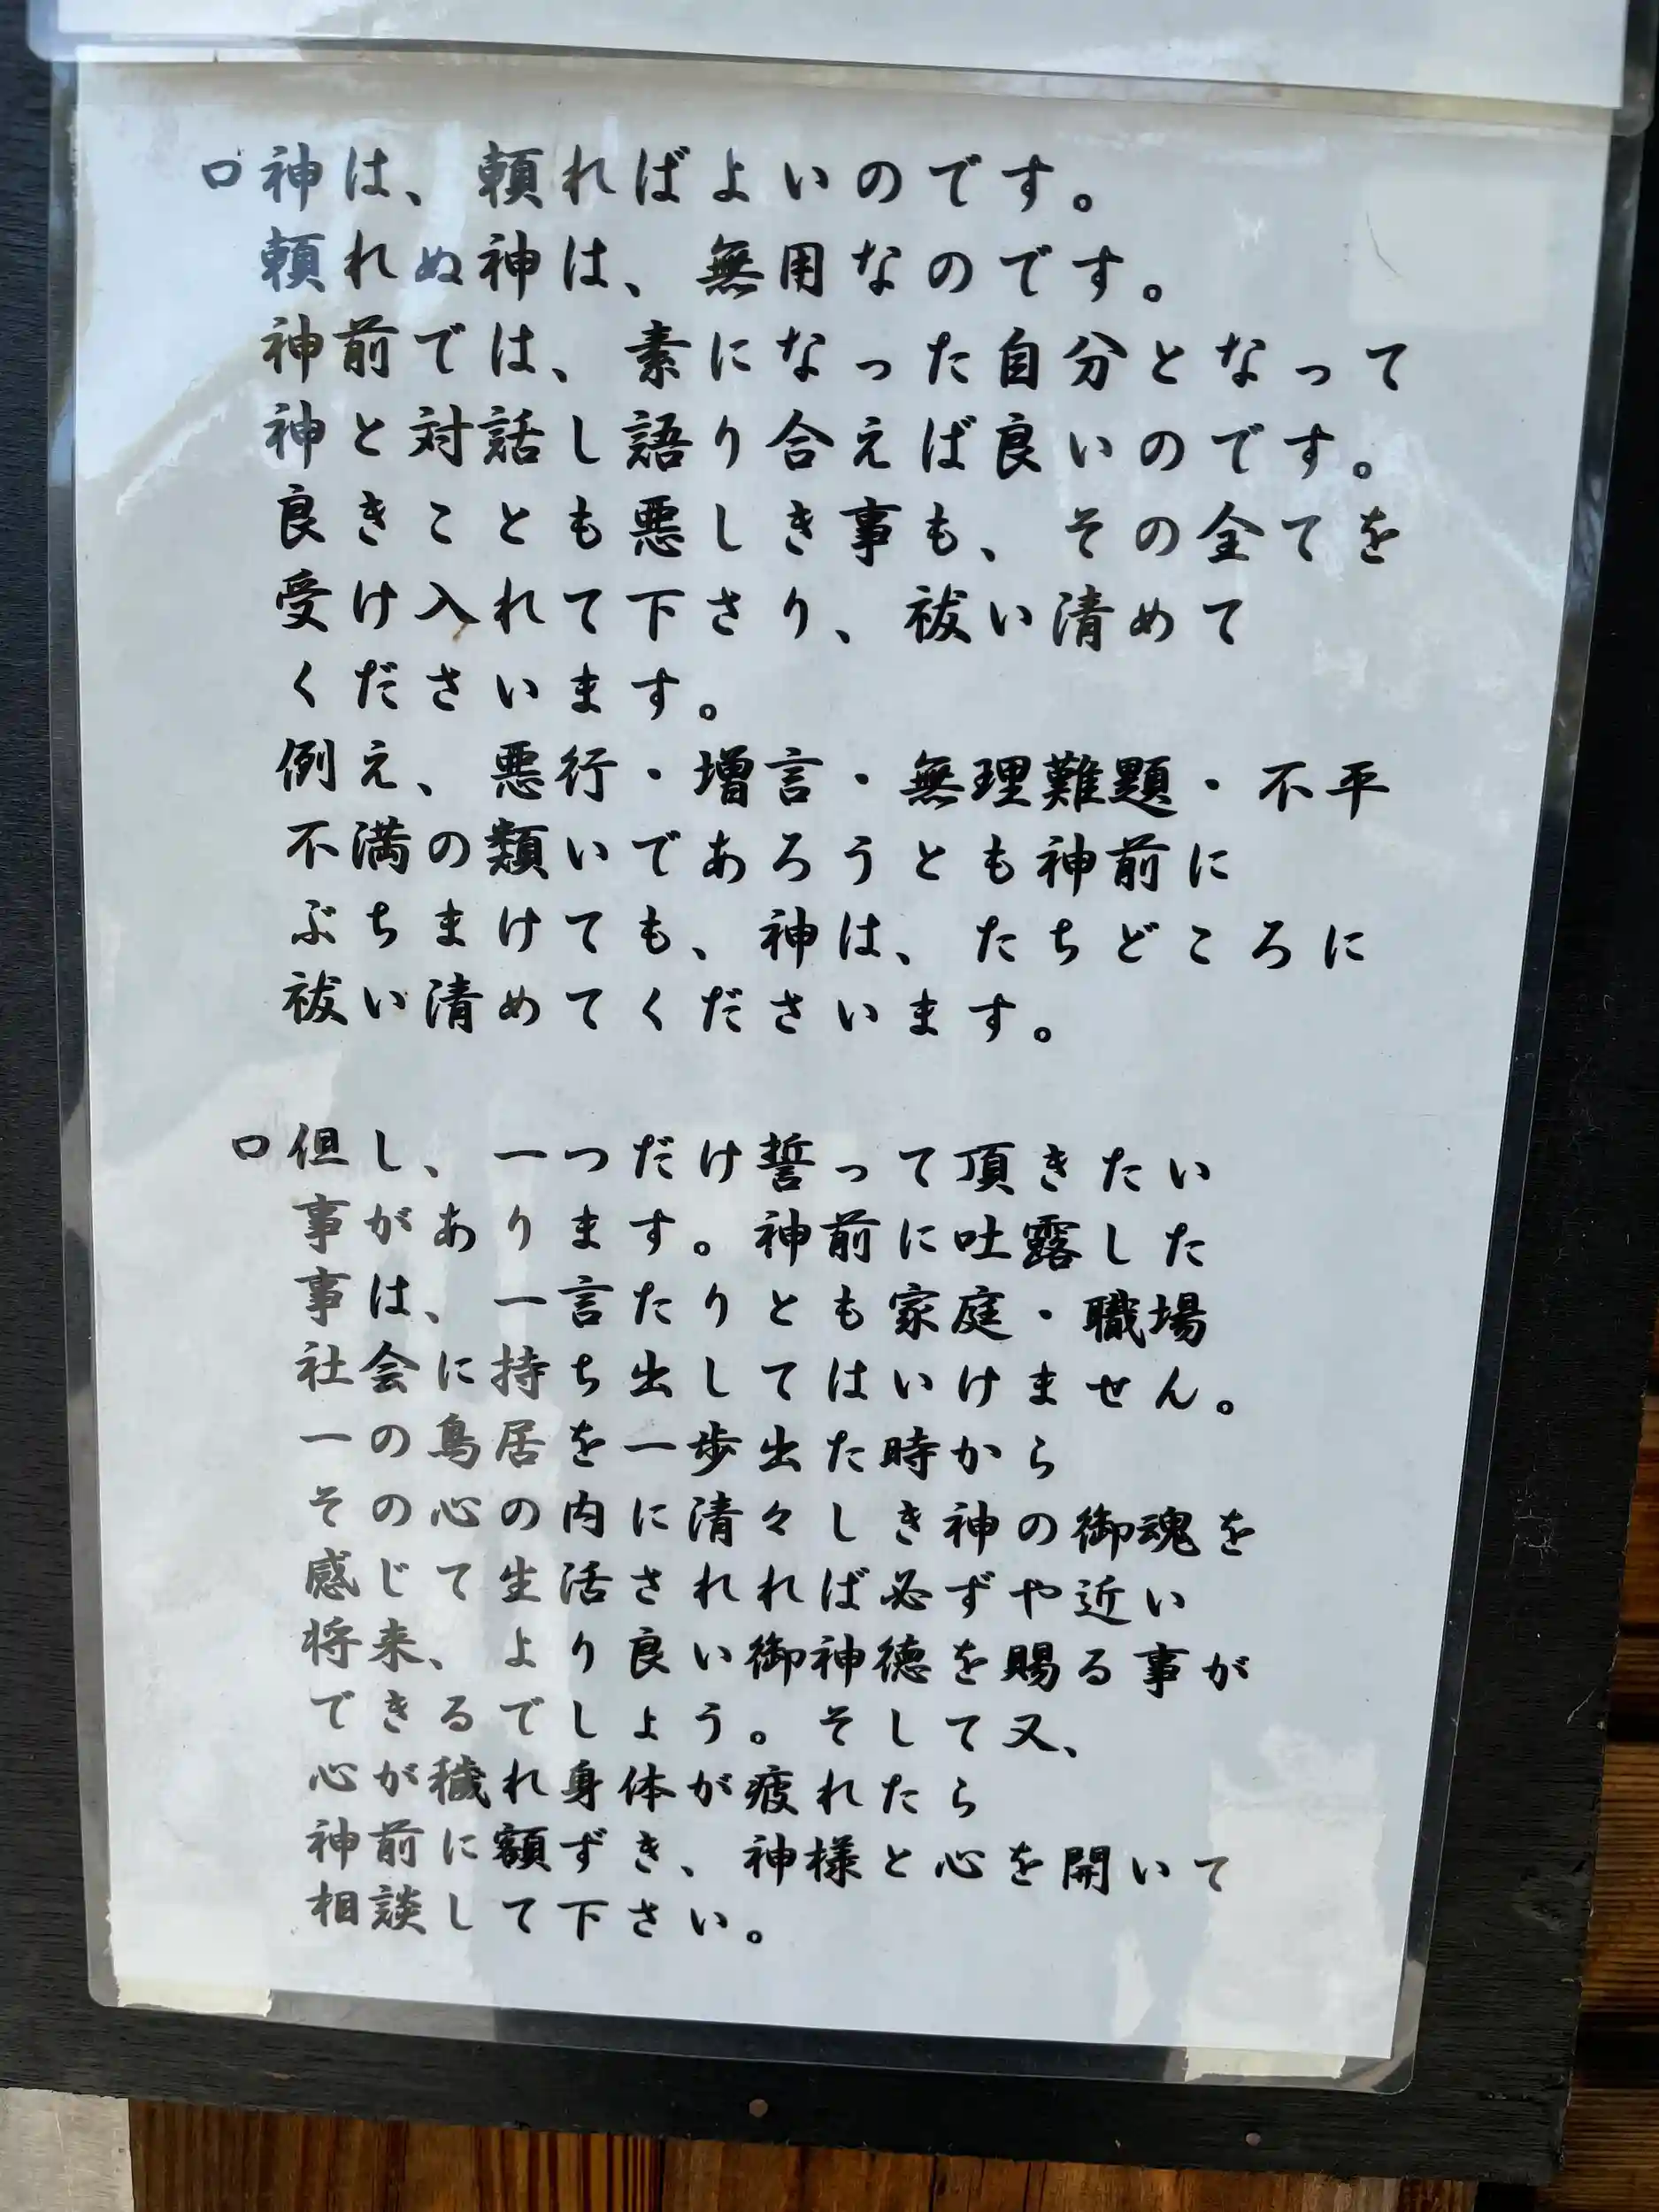 □神は、頼ればよいのです。
頼れぬ神は、無用なのです。
神前では、素になった自分となって
神と対話し語り合えば良いのです。
良きことも悪しき事も、その全てを
受け入れて下さり、祓い清めて
くださいます。
例え、悪行・増言・無理難題・不平
不満の類いであろうとも神前に
ぶちまけても、神は、たちどころに
祓い清めてくださいます。
□但し、一つだけ誓って頂きたい
事があります。神前に吐露した
事は、一言たりとも家庭・職場
社会に持ち出してはいけません。
一の鳥居を一歩出た時から
その心の内に清々しき神の御魂を
感じて生活されれば必ずや近い
将来、より良い御神徳を賜る事が
できるでしょう。そして又、
心が穢れ身体が疲れたら
神前に額ずき、神様と心を開いて
相談して下さい。